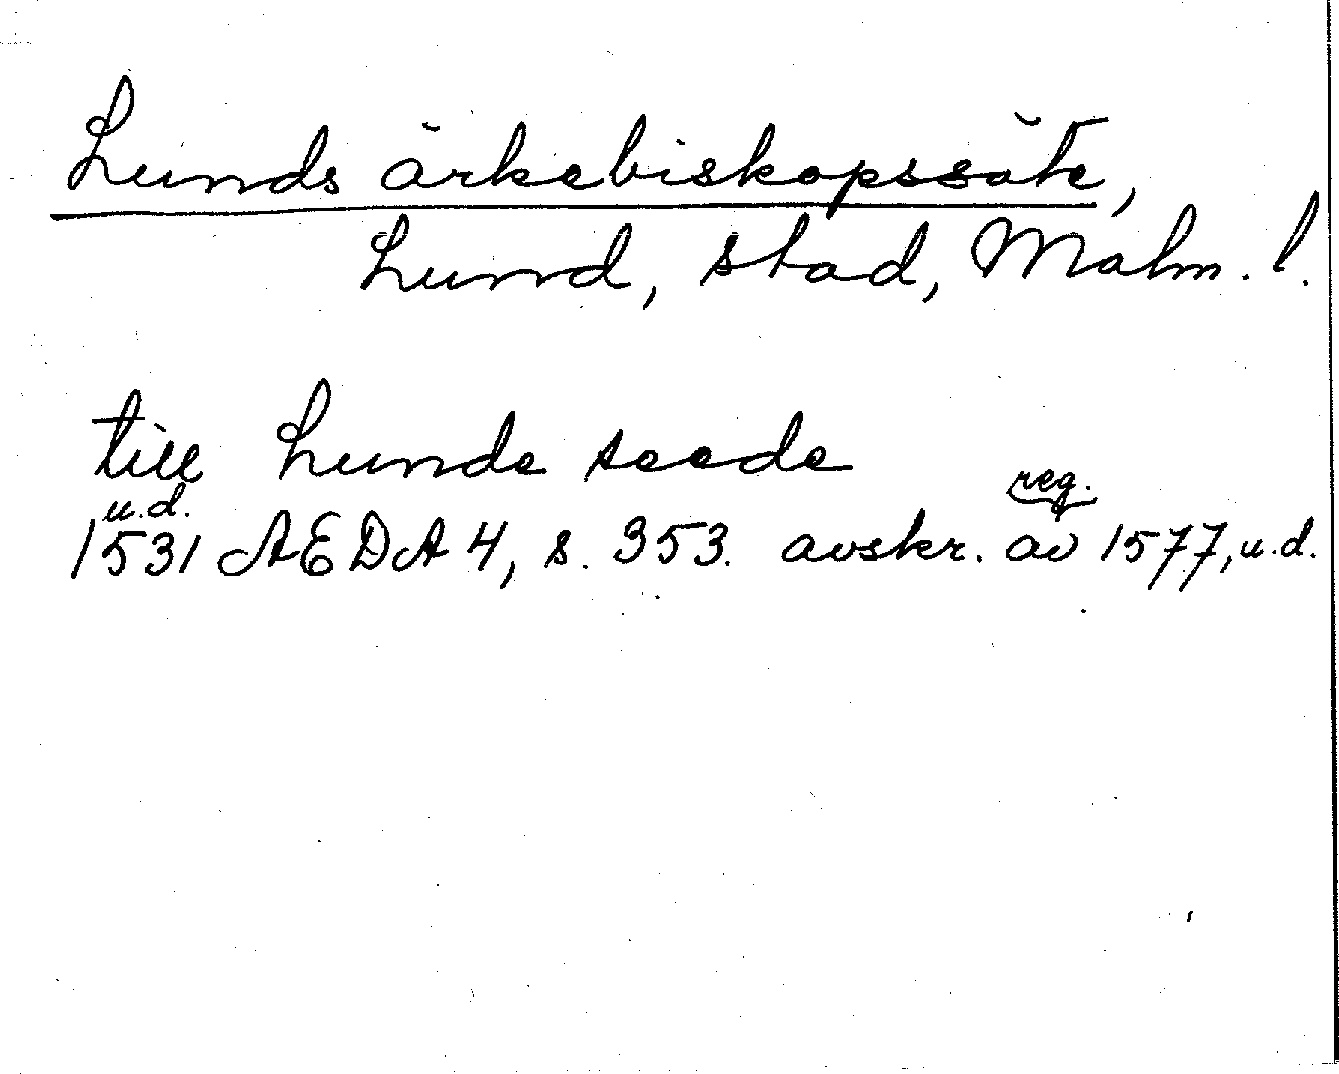 Lunds ärkebiskopssäte,
Lund, stad, Malm. l.
till Lunde seede
u.d. reg.
1531 AEDA 4, s. 353. avskr. av 1577, u.d.